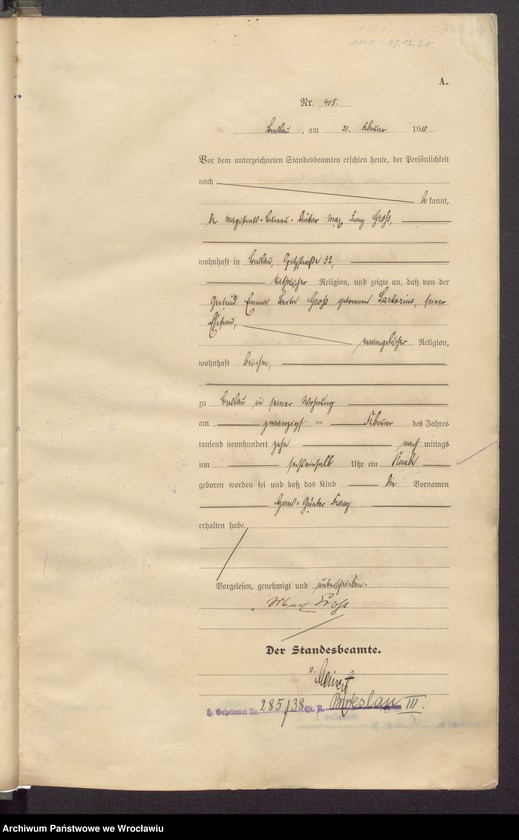 A.
Nr. 405.
Breslau, am 21. Februar 1910
Vor dem unterzeichneten Standesbeamten erschien heute, der Persönlichkeit
nach
kannt,
der Magistrats-Bureau-Diätar Max Franz Groß,
wohnhaft in Breslau, 32,
katholischer Religion, und zeigte an, daß von der
Gertrud Emma Groß geborenen Sartorius, seiner
Ehefrau,
evangelischer Religion,
wohnhaft bei ihm,
zu Breslau in seiner Wohnung
am zwanzigsten Februar des Jahres
tausend neunhundert zehn nach mittags
um sechseinhalb Uhr ein Knabe
geboren worden sei und daß das Kind die Vornamen
Hans-Günter Franz
erhalten habe.
Vorgelesen, genehmigt und unterschrieben.
Max Groß
Der Standesbeamte.
285/38 St. A. Breslau III.
Archiwum Państwowe we Wrocławiu